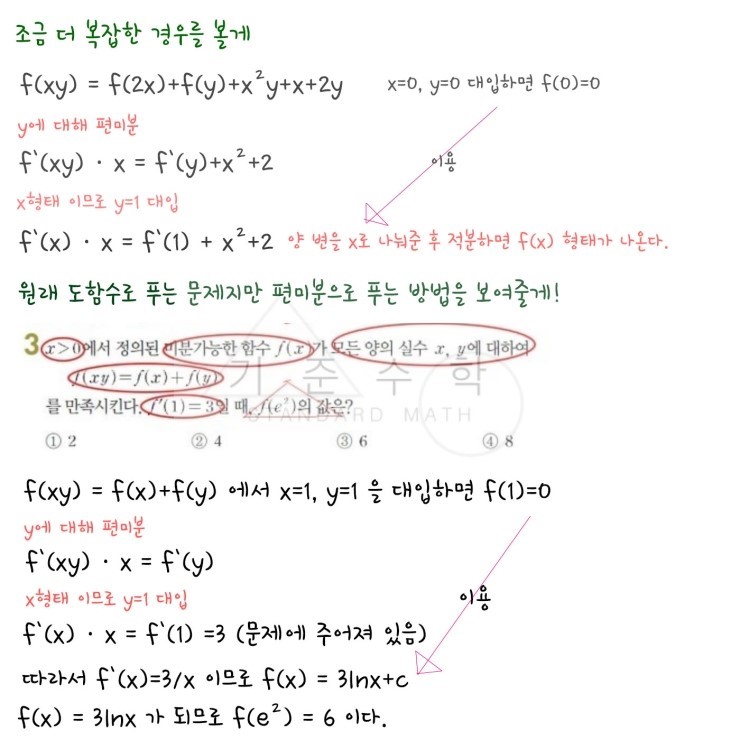 조금 더 복잡한 경우를 볼게
f(xy) = f(2x)+f(y)+x²y+x+2y x=0, y=0 대입하면 f(0)=0
y에 대해 편미분
f`(xy) · x = f`(y)+x²+2 이용
x형태 이므로 y=1 대입
f`(x) · x = f`(1) + x²+2 양 변을 x로 나눠준 후 적분하면 f(x) 형태가 나온다.
원래 도함수로 푸는 문제지만 편미분으로 푸는 방법을 보여줄게!
3 x>0에서 정의된 미분가능한 함수 f(x)가 모든 양의 실수 x, y에 대하여
f(xy)=f(x)+f(y)
를 만족시킨다. f'(1)=3일 때, f(e²)의 값은?
① 2 ② 4 ③ 6 ④ 8
기준수학
STANDARD MATH
f(xy) = f(x)+f(y) 에서 x=1, y=1 을 대입하면 f(1)=0
y에 대해 편미분
f`(xy) · x = f`(y)
x형태 이므로 y=1 대입 이용
f`(x) · x = f`(1) =3 (문제에 주어져 있음)
따라서 f`(x)=3/x 이므로 f(x) = 3lnx+c
f(x) = 3lnx 가 되므로 f(e²) = 6 이다.